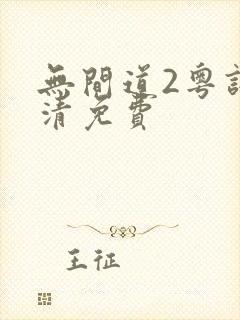 無間道2粵
清免費
王征